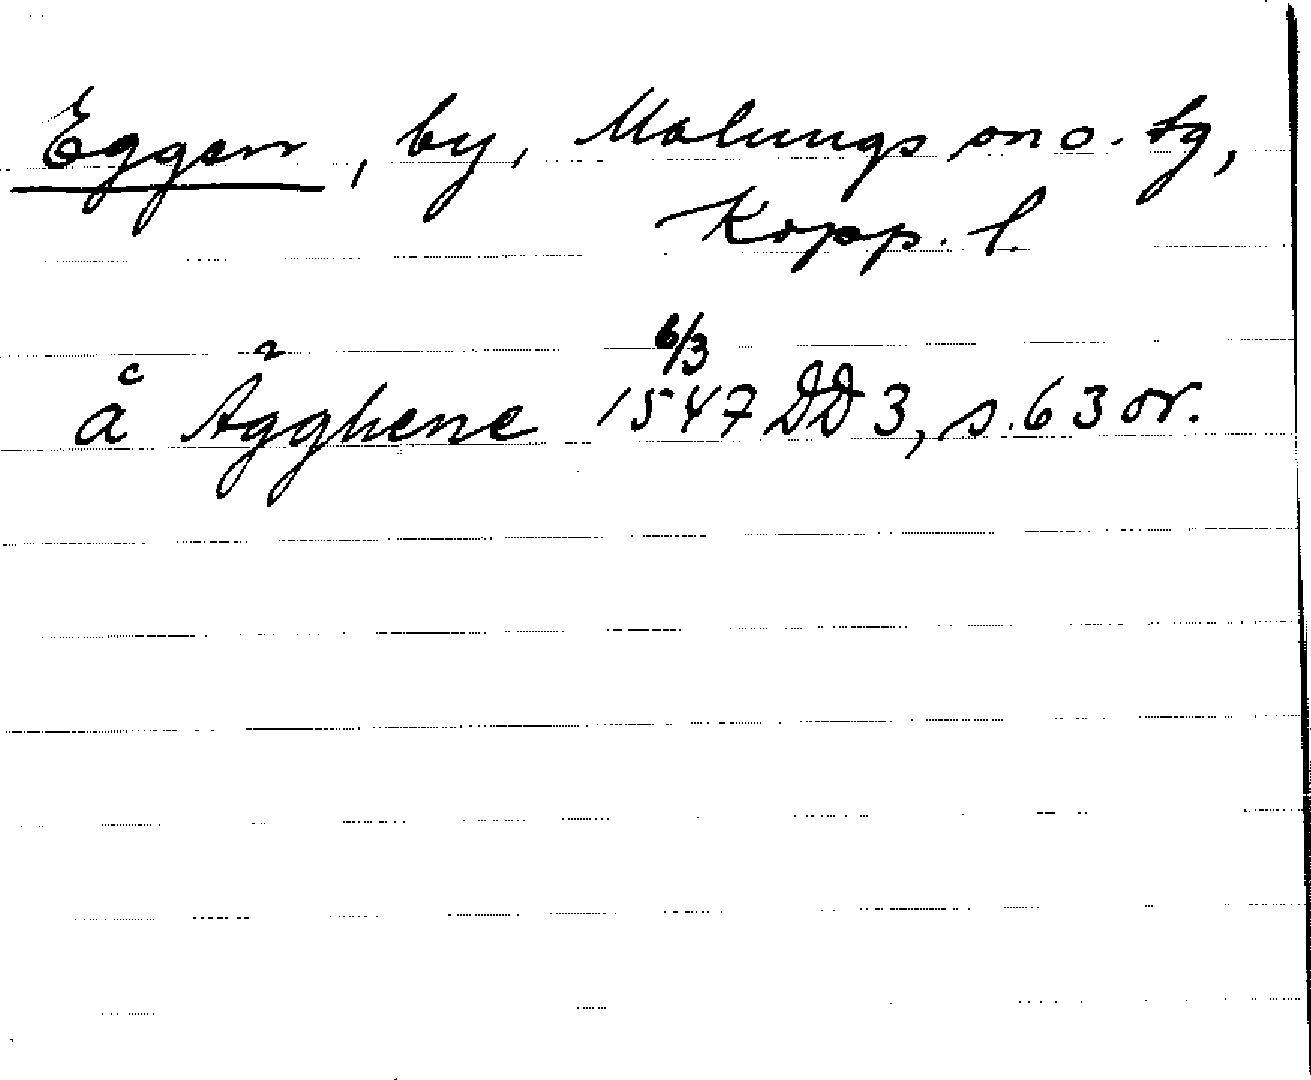 Eggen, by, Malungs sn o. tg,
Kopp. l.
å Ägghene 6/3 1547 DD 3, s. 63 or.